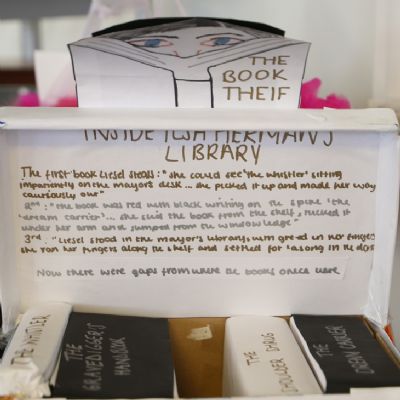 THE
BOOK
THEIF
INSIDE ILSA HERMAN'S
LIBRARY
The first book Liesel steals: "she could see 'the whistler' sitting
impatiently on the mayors desk... she picked it up and made her way
cautiously out"
2nd: "the book was red with black writing on the spine 'the
dream carrier'... she slid the book from the shelf, tucked it
under her arm and jumped from the window ledge"
3rd. "Liesel stood in the mayor's library with greed in her fingers
she ran her fingers along the shelf and settled for
Now there were gaps from where the books once were
THE WHISTLER
THE
GRAVEDIGGER'S
HANDBOOK
THE
SHOULDER SHRUG
THE
DREAM CARRIER